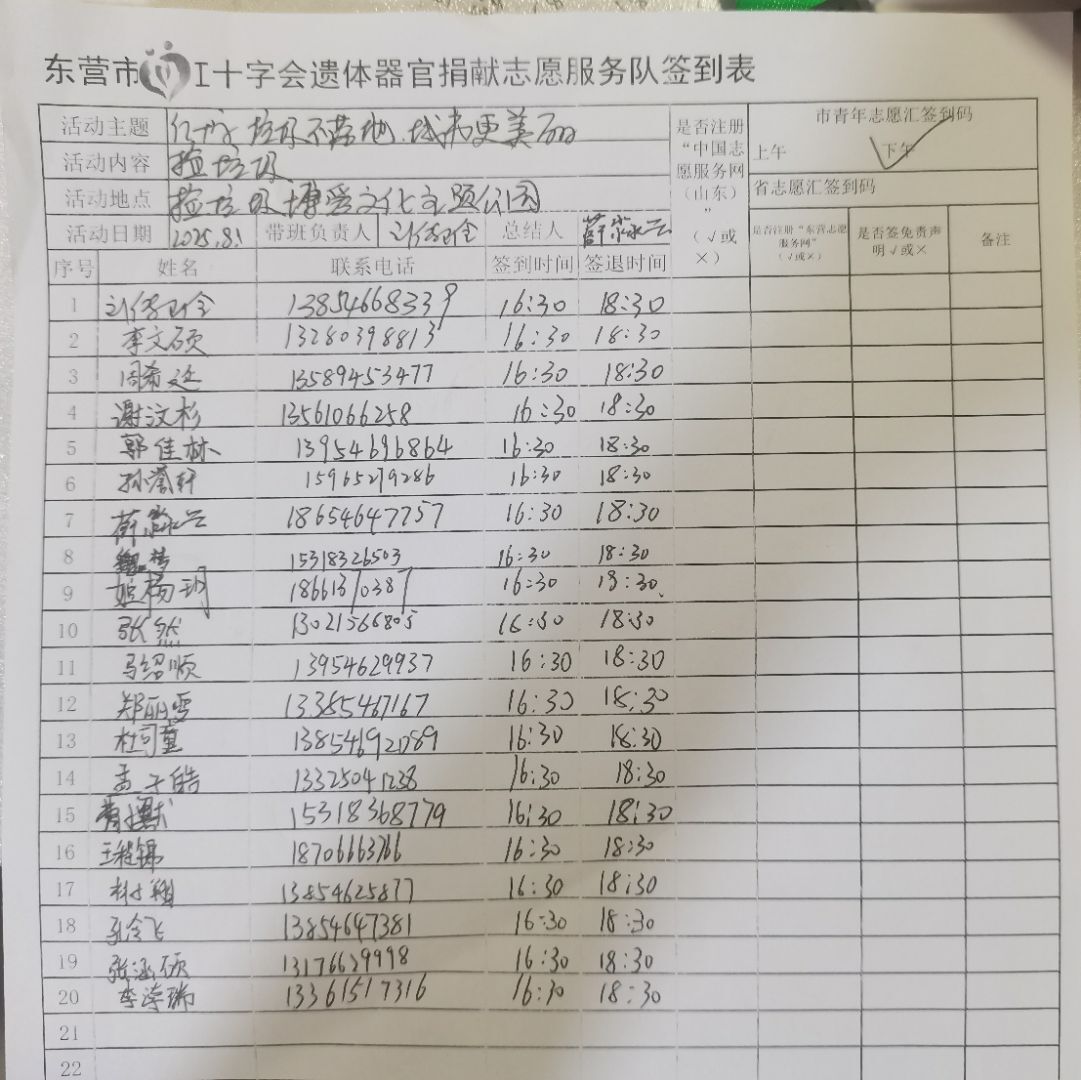 东营市 工十字会遗体器官捐献志愿服务队签到表
活动主题 垃圾不落地.城市更美丽
活动内容 捡垃圾
活动地点 捡垃圾 博爱文化主题公园
活动日期 2025.8.1 带班负责人 总结人
是否注册“中国志愿服务网(山东)”(√或×)
市青年志愿汇签到码
上午 下午 √
省志愿汇签到码
是否注册“东营志愿服务网”(√或×) 是否签免责声明√或× 备注
序号 姓名 联系电话 签到时间 签退时间
1 13854668339 16:30 18:30
2 李文硕 13280398813 16:30 18:30
3 周希廷 13589453477 16:30 18:30
4 谢汶杉 13561066258 16:30 18:30
5 郭佳林 13954696864 16:30 18:30
6 孙誉轩 15965279286 16:30 18:30
7 18654647757 16:30 18:30
8 15318326503 16:30 18:30
9 姬杨玥 18661370387 16:30 18:30
10 张然 13021566805 16:30 18:30
11 马绍顺 13954629937 16:30 18:30
12 郑丽雪 13385467167 16:30 18:30
13 杜可童 13854692089 16:30 18:30
14 孟子皓 13325041238 16:30 18:30
15 15318368779 16:30 18:30
16 18706663766 16:30 18:30
17 13854625877 16:30 18:30
18 孔令飞 13854647381 16:30 18:30
19 张涵硕 13176629998 16:30 18:30
20 13361517316 16:30 18:30
21
22